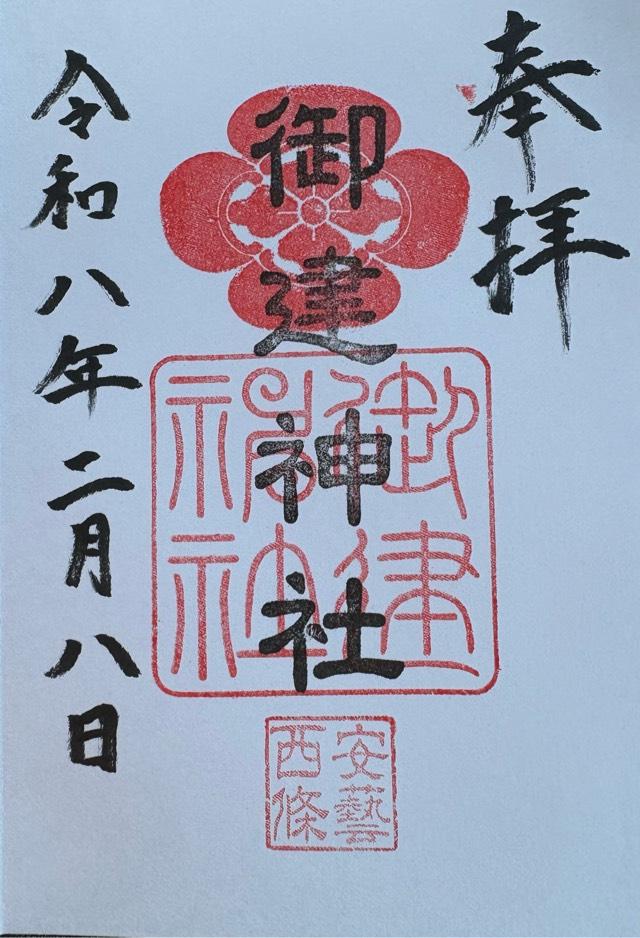 奉拝
御建神社
御建神社
安藝西條
令和八年二月八日